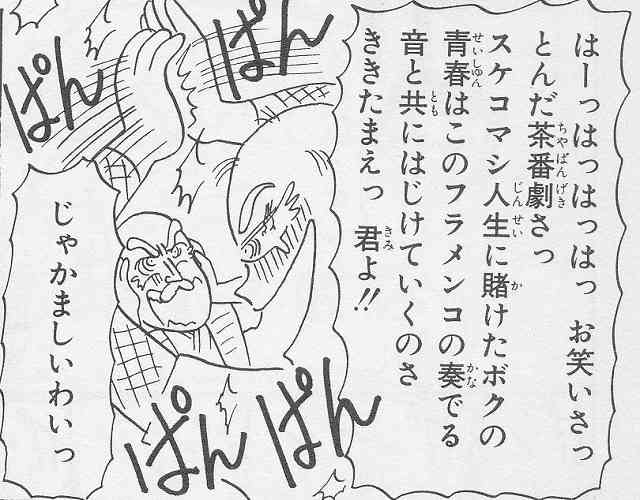 はーっはっはっはっ お笑いさっ
とんだ茶番劇さっ
スケコマシ人生に賭けたボクの
青春はこのフラメンコの奏でる
音と共にはじけていくのさ
ききたまえっ 君よ!!
ぱん
ぱん
じゃかましいわいっ
ぱん
ぱん